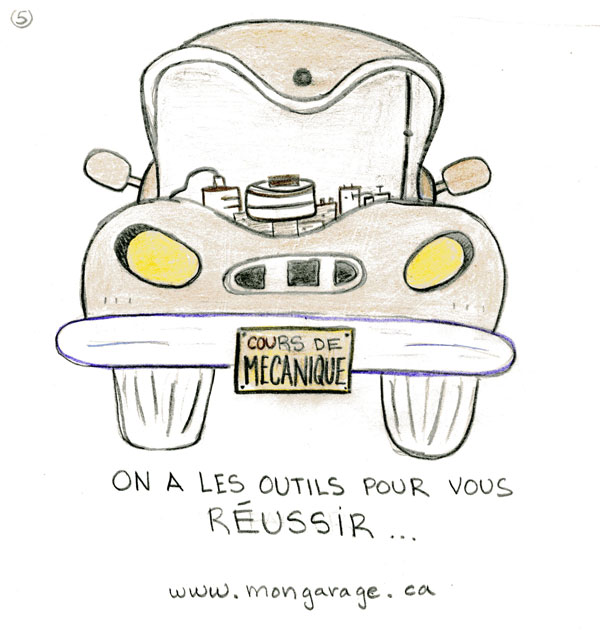 5
COURS DE
MECANIQUE
ON A LES OUTILS POUR VOUS
RÉUSSIR...
www.mongarage.ca